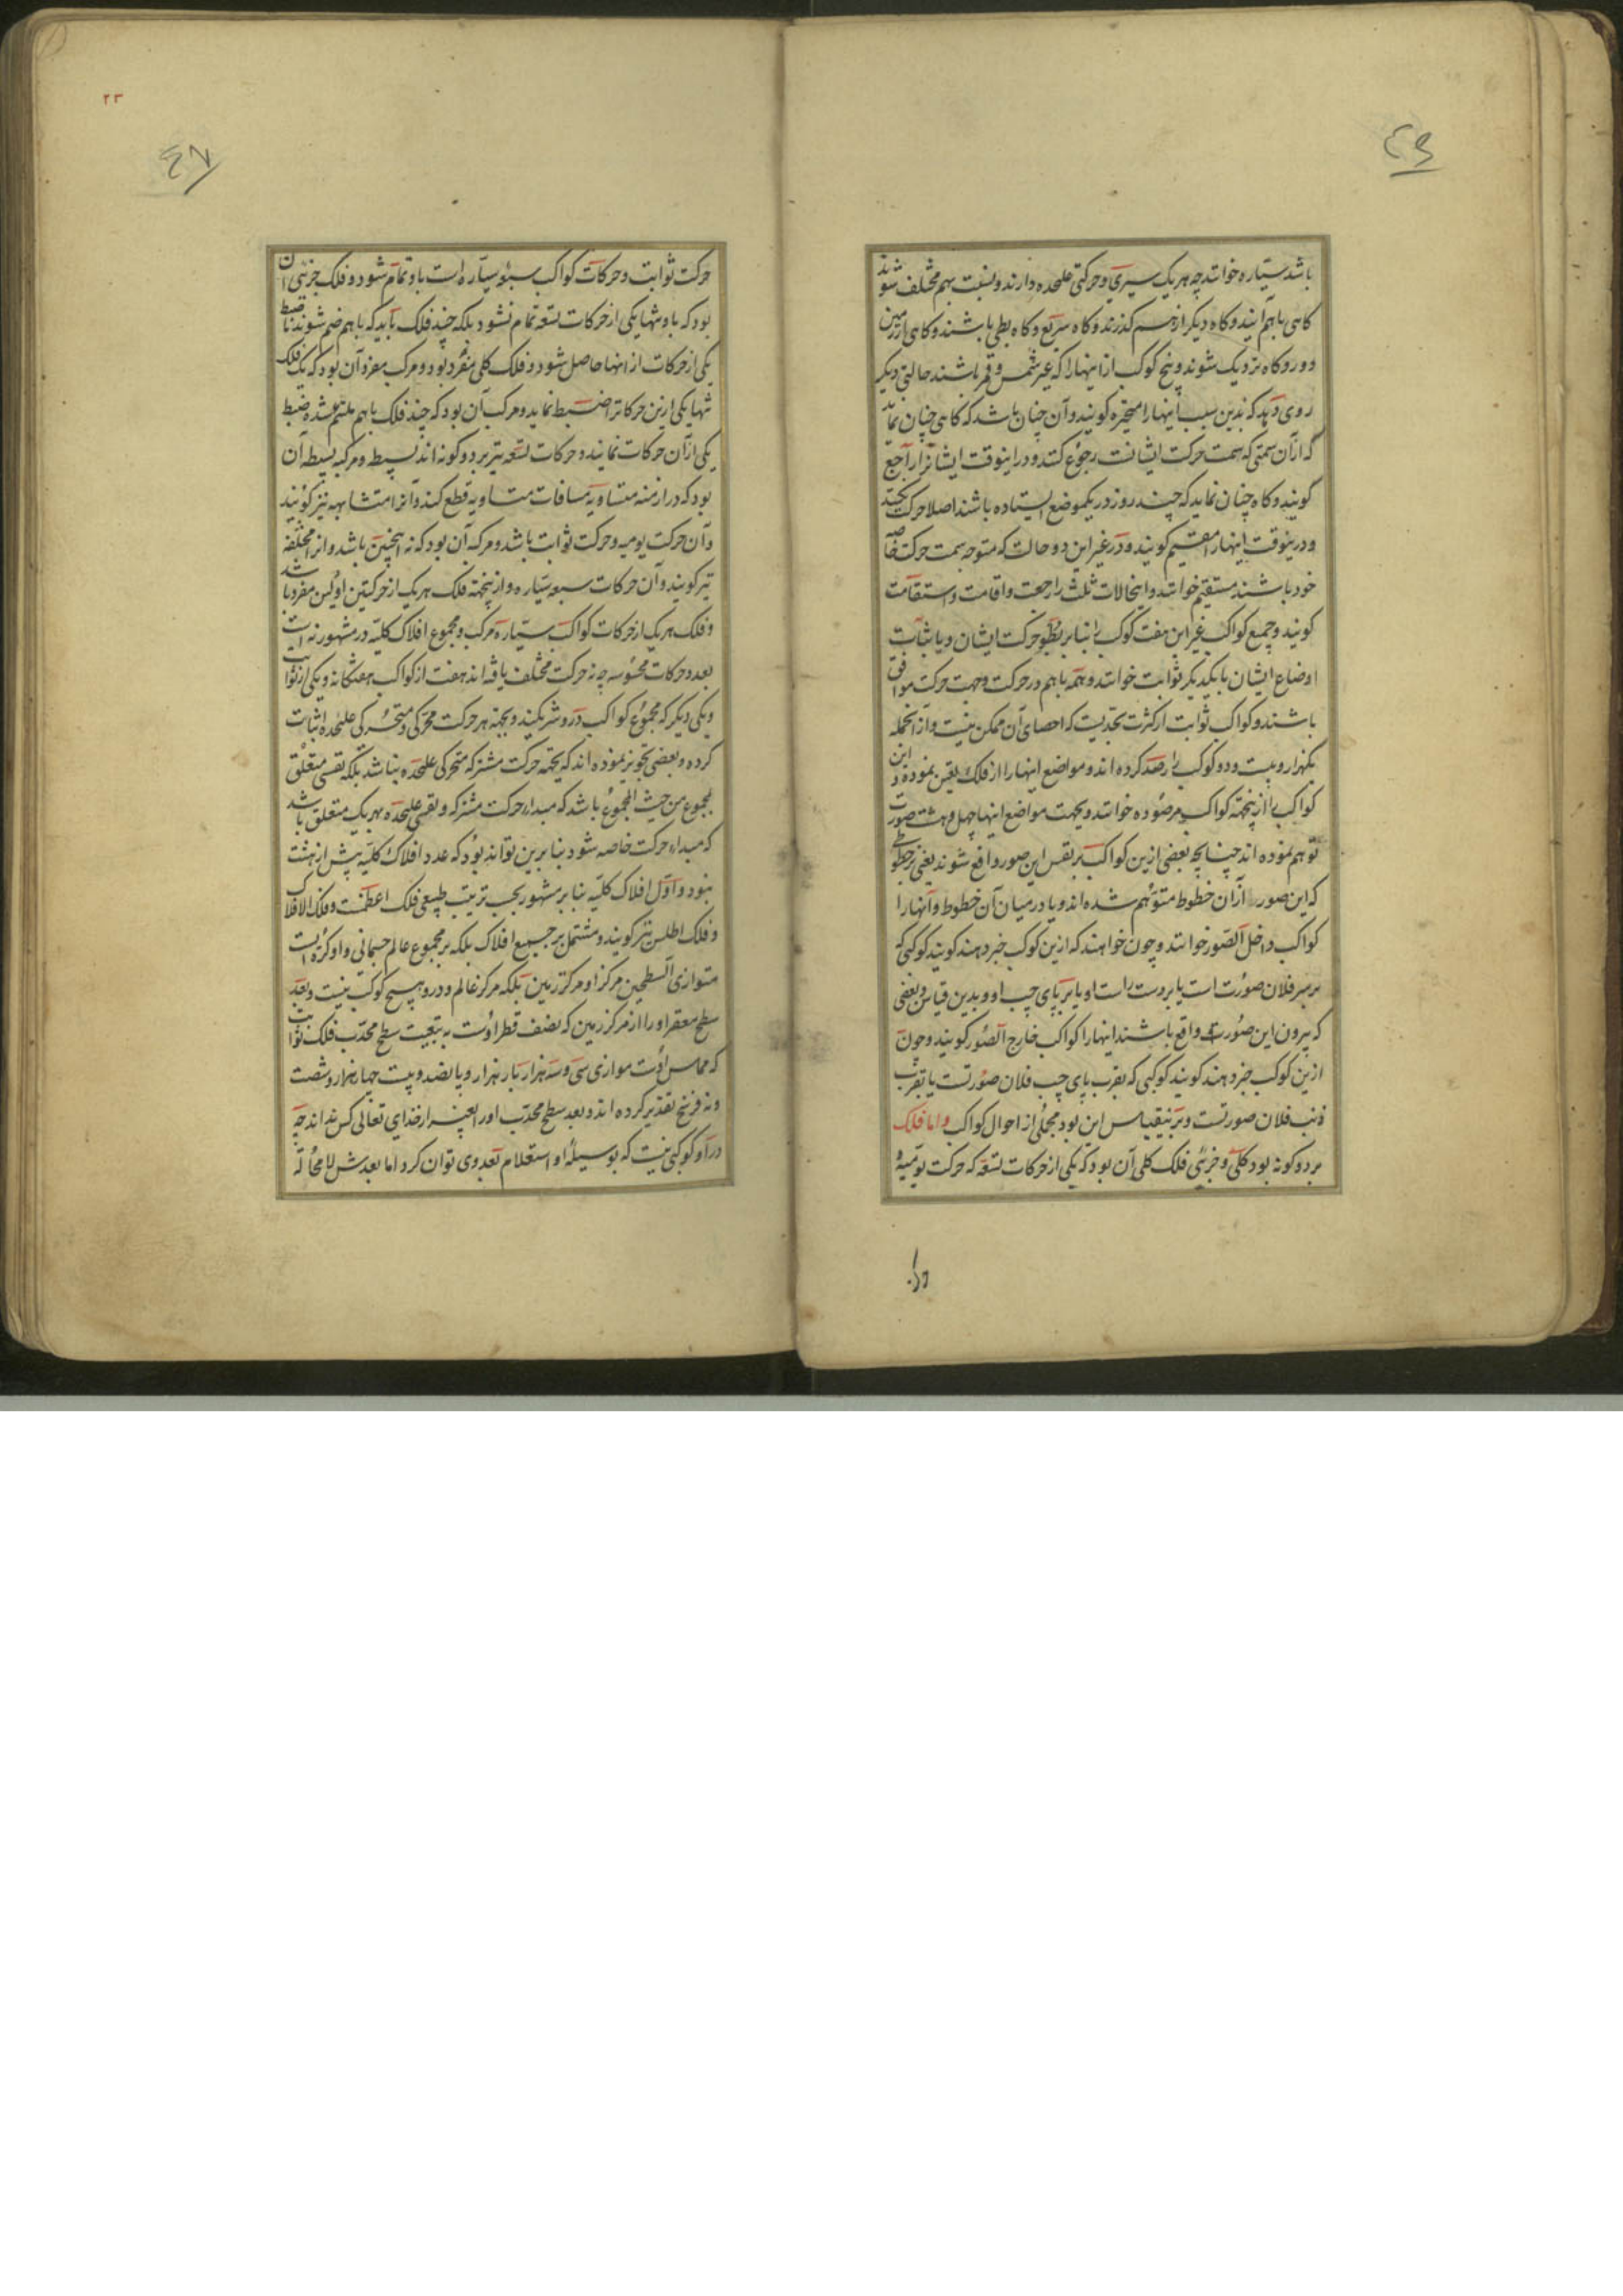 باشد سیاره خوانند چه هر یک سیری و حرکتی علیحده دارند و بنسبت بهم مختلف شوند
کاهی باهم آیند و کاه دیکر از هم کذرند و کاه سریع و کاه بطی باشند و کاهی از زمین
دور و کاه نزدیک شوند و پنج کوکب از اینها را که غیر شمس و قمر باشند حالتی دیکر
روی دهد که بدین سبب اینها را متحیره کویند و آن چنان باشد که کاهی چنان نماید
که از آن سمتی که سمت حرکت ایشانست رجوع کنند و در اینوقت ایشانرا راجع
کویند و کاه چنان نماید که چند روز در یکموضع ایستاده باشند اصلا حرکت نکنند
و درینوقت اینها را مقیم کویند و در غیر این دو حالت که متوجه سمت حرکت خاصه
خود باشند مستقیم خوانند و اینحالات ثلث را رجعت و اقامت و استقامت
کویند و جمیع کواکب غیر این هفت کوکب را بنابر بطؤ حرکت ایشان و یا ثبات
اوضاع ایشان با یکدیکر ثوابت خوانند و همه باهم در حرکت و جهت حرکت موافق
باشند و کواکب ثوابت از کثرت بحدیست که احصای آن ممکن نیست و از آنجمله
یکهزار و بیست و دو کوکب را رصد کرده اند و مواضع اینها را از فلک تعین نموده و این
کواکب را از ینجهته کواکب مرصوده خوانند و بجهت مواضع اینها چهل و هشت صورت
توهم نموده اند چنانچه بعضی ازین کواکب بر نفس این صور واقع شوند یعنی بر خطوطی
که این صور از آن خطوط متوهم شده اند و یا در میان آن خطوط و آنها را
کواکب داخل الصور خوانند و چون خواهند که ازین کوکب خبر دهند کویند کوکبی که
بر سر فلان صورت است یا بر دست راست او یا بر پای چپ او و بدین قیاس و بعضی
که بیرون این صورت واقع باشند اینها را کواکب خارج الصور کویند و چون
ازین کوکب خبر دهند کویند کوکبی که بقرب پای چپ فلان صورتست یا بقرب
ذنب فلان صورتست و برینقیاس این بود مجملی از احوال کواکب و اما فلک
بر دو کونه بود کلی و جزئی فلک کلی آن بود که یکی از حرکات تسعه که حرکت یومیه و
حرکت ثوابت و حرکات کواکب سبعه سیاره است باو تمام شود و فلک جزئی آن
بود که باو تنها یکی از حرکات تسعه تمام نشود بلکه چند فلک باید که باهم ضم شوند تا ضبط
یکی از حرکات از انها حاصل شود و فلک کلی مفرد بود و مرکب مفرد آن بود که یک فلک
تنها یکی ازین حرکاترا ضبط نماید و مرکب آن بود که چند فلک باهم ملتئم شده ضبط
یکی از آن حرکات نمایند و حرکات تسعه نیز بر دو کونه اند بسیط و مرکبه بسیطه آن
بود که در ازمنه متساویه مسافات متساویه قطع کند و آنرا متشابهه نیز کویند
و آن حرکت یومیه و حرکت ثوابت باشد و مرکبه آن بود که نه اینچنین باشد و انرا مختلفه
نیز کویند و آن حرکات سبعه سیاره و ازینجهته فلک هر یک از حرکتین اولین مفرد باشد
و فلک هر یک از حرکات کواکب سیاره مرکب و مجموع افلاک کلیه در مشهور نه است
بعدد حرکات محسوسه چه نه حرکت مختلف یافته اند هفت از کواکب هفتکانه و یکی از ثوابت
و یکی دیکر که مجموع کواکب در و شریکند و بجهة هر حرکت محرکی و متحرکی علیحده اثبات
کرده و بعضی تجویز نموده اند که بجهة حرکت مشترکه متحرکی علیحده نباشد بلکه نفسی متعلق
بمجموع من حیث المجموع باشد که مبداء حرکت مشترکه و نفسی علیحده بهر یک متعلق باشد
که مبداء حرکت خاصه شود بنابرین تواند بود که عدد افلاک کلیه بیش از هشت
نبود و اول افلاک کلیه بنابر مشهور بحسب ترتیب طبیعی فلک اعظمست و فلک الافلاک
و فلک اطلس نیز کویند و مشتمل بر جمیع افلاک بلکه بر مجموع عالم جسمانی و او کره ایست
متوازی السطحین مرکز او مرکز زمین بلکه مرکز عالم و درو هیچ کوکب نیست و بعد
سطح مقعر او را از مرکز زمین که نصف قطر اوست به تبعیت سطح محدب فلک ثوابت
که مماس اوست موازی سی و سه هزار بار هزار و پانصد و بیست چهار هزار و شصت
و نه فرسخ تقدیر کرده اند و بعد سطح محدب او را بغیر از خدای تعالی کس نداند چه
درآو کوکبی نیست که بوسیله او استعلام بعد وی توان کرد اما بعدش لا محاله